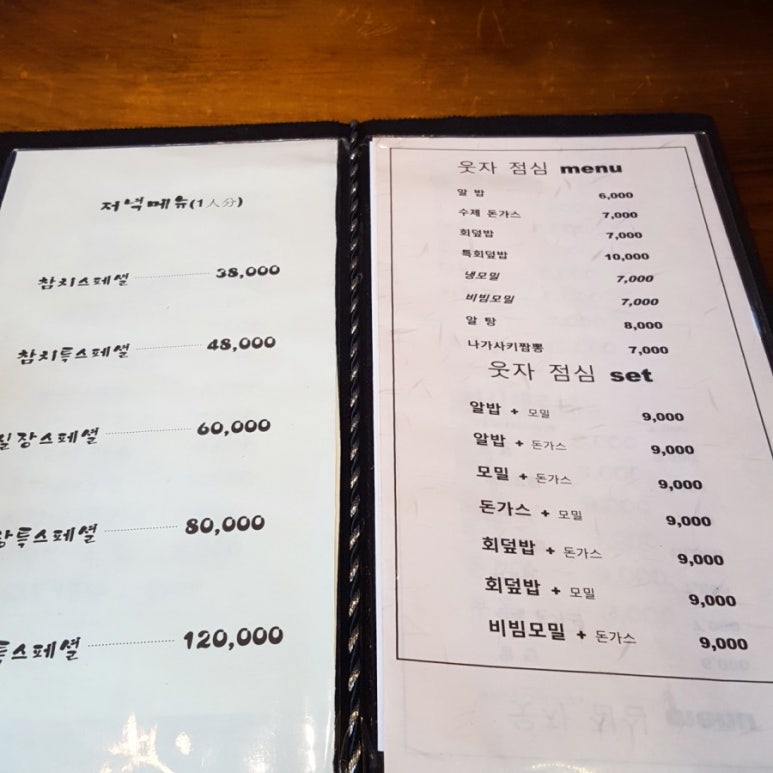 저녁메뉴(1人分)
참치스페셜 38,000
참치특스페셜 48,000
실장스페셜 60,000
특스페셜 80,000
특스페셜 120,000
웃자 점심 menu
알 밥 6,000
수제 돈가스 7,000
회덮밥 7,000
특회덮밥 10,000
냉모밀 7,000
비빔모밀 7,000
알 탕 8,000
나가사키짬뽕 7,000
웃자 점심 set
알밥 + 모밀 9,000
알밥 + 돈가스 9,000
모밀 + 돈가스 9,000
돈가스 + 모밀 9,000
회덮밥 + 돈가스 9,000
회덮밥 + 모밀 9,000
비빔모밀 + 돈가스 9,000